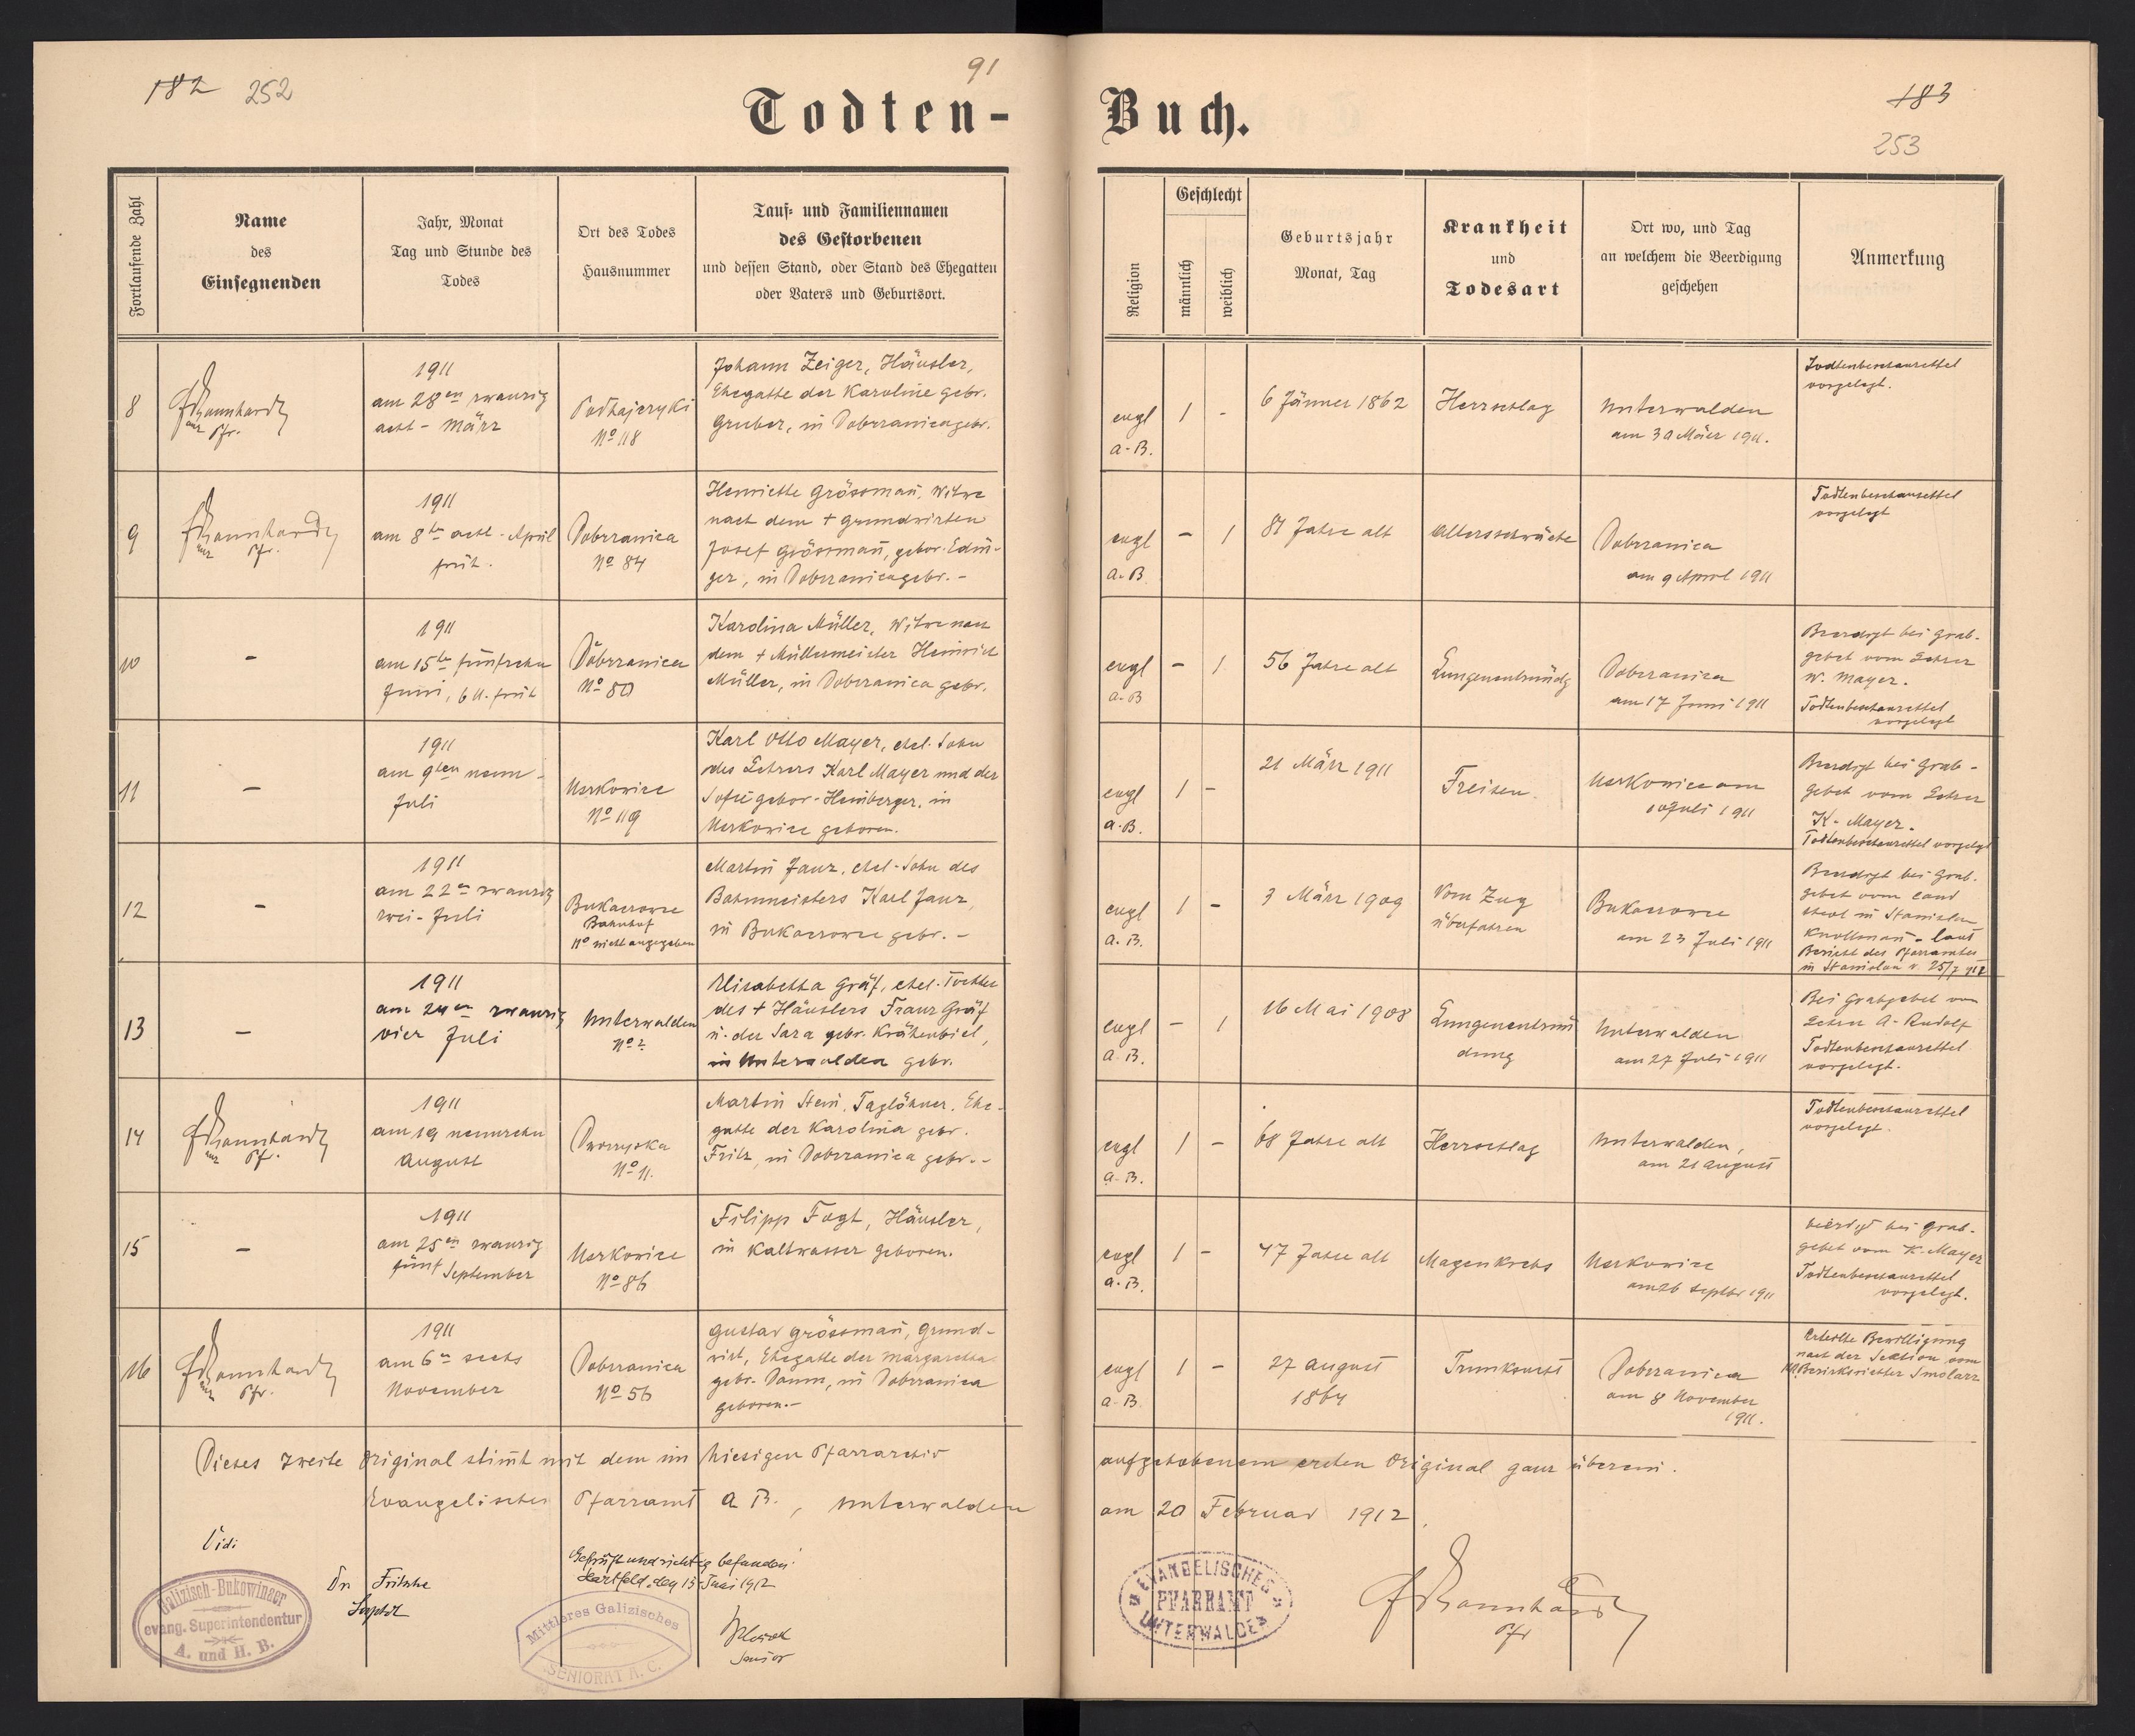 182 252
91
Todten-
Buch.
183
253
Fortlaufende Zahl
Name
des
Einsegnenden
Jahr, Monat
Tag und Stunde des
Todes
Ort des Todes
Hausnummer
Tauf- und Familiennamen
des Gestorbenen
und dessen Stand, oder Stand des Ehegatten
oder Vaters und Geburtsort.
Religion
Geschlecht
männlich
weiblich
Geburtsjahr
Monat, Tag
Krankheit
und
Todesart
Ort wo, und Tag
an welchem die Beerdigung
geschehen
Anmerkung
8
Pfr.
1911
am 28en zwanzig
acht - März
Podhajczyki
No 118
Johann Zeiger, Häusler,
Ehegatte der Karoline gebr.
Gruber, in Dobrzanica gebr.
evgl
a-B.
1
-
6 Jänner 1862
Herzschlag
Unterwalden
am 30 März 1911.
Todtenbeschauzettel
vorgelegt.
9
Pfr.
1911
am 8ten acht - April
früh.
Dobrzanica
No 84
Henriette Grössman̄, Witwe
nach dem + Grundwirten
Josef Grössman̄, gebor. Edin-
ger, in Dobrzanica gebr. -
evgl
a-B
-
1
81 Jahre alt
Altersschwäche
Dobrzanica
am 9 April 1911
Todtenbeschauzettel
vorgelegt
10
-
1911
am 15ten fünfzehn
Juni, 6 U. früh
Dobrzanica
No 80
Karolina Müller, Witwe nach
dem + Müllermeister Heinrich
Müller, in Dobrzanica gebr.
evgl
a-B
-
1
56 Jahre alt
Lungenentzündg
Dobrzanica
am 17 Juni 1911
Beerdigt bei Grab-
gebet vom Lehrer
W. Mayer.
Todtenbeschauzettel
vorgelegt
11
-
1911
am 9ten neun -
Juli
Uszkowice
No 119
Karl Otto Mayer, ehel. Sohn
des Lehrers Karl Mayer und der
Sofie gebor. Heimberger, in
Uszkowice geboren.
evgl
a.B.
1
-
21 März 1911
Freisen
Uszkowice am
10 Juli 1911
Beerdigt bei Grab-
gebet vom Lehrer
K. Mayer.
Todtenbeschauzettel vorgelegt
12
-
1911
am 22en zwanzig
zwei - Juli
Bukaczowce
Bahnhof
No nicht angegeben
Martin Janz, ehel. Sohn des
Bahnmeisters Karl Janz,
in Bukaczowce gebr. -
evgl
a. B.
1
-
3 März 1909
Vom Zug
überfahren
Bukaczowce
am 23 Juli 1911
Beerdigt bei Grab-
gebet vom cand
theol in Stanislau
laut
Bericht des Pfarramtes
in Stanislau v. 25/7
13
-
1911
am 24en zwanzig
vier Juli
Unterwalden
No 2
Elisabetha Gräf, ehel. Tochter
des + Häuslers Franz Gräf
u. der Sara gebr. Krähenbiel,
in Unterwalden gebr.
evgl
a. B.
-
1
16 Mai 1908
Lungenentzün
dung
Unterwalden
am 27 Juli 1911
Bei Grabgebet von
Lehrer A. Rudolf
Todtenbeschauzettel
vorgelegt.
14
Pfr.
1911
am 19 neunzehn
August
No 11.
Martin Stein, Taglöhner, Ehe-
gatte der Karolina gebr.
Fritz, in Dobrzanica gebr. -
evgl
a-B.
1
-
68 Jahre alt
Herzschlag
Unterwalden,
am 21 August
Todtenbeschauzettel
vorgelegt.
15
-
1911
am 25en zwanzig
fünf September
Uszkowice
No 86
Filipp Fogt, Häusler,
in Kaltwasser geboren.
evgl
a.B.
1
-
47 Jahre alt
Magenkrebs
Uszkowice
am 26 Septbr 1911
beerdigt bei Grab-
gebet vom K. Mayer
Todtenbeschauzettel
vorgelegt.
16
Pfr.
1911
am 6en sechs
November
Dobrzanica
No 56
Gustav Grössman̄, Grund-
wirt, Ehegatte der Margaretha
gebr. Daum, in Dobrzanica
geboren. -
evgl
a-B
1
-
27 August
1864
Trunksucht
Dobrzanica
am 8 November
1911.
Erteilte Bewilligung
nach der Sektion vom
Bezirksrichter Smolarz
Dieses zweite Original stim̄t mit dem im hiesigen Pfarrarchiv aufgehobenem ersten Original ganz überein.
Evangelisches Pfarramt A. B., Unterwalden am 20 Februar 1912.
Vidi
Dr Fritsche
Suptdt
Geprüft und richtig befunden:
Hartfeld, den 15 Juni 1912
Senior
Galizisch-Bukowinaer
evang. Superintendentur
A. und H. B.
Mittleres Galizisches
SENIORAT A. C.
EVANGELISCHES
PFARRAMT
UNTERWALDEN
Pfr